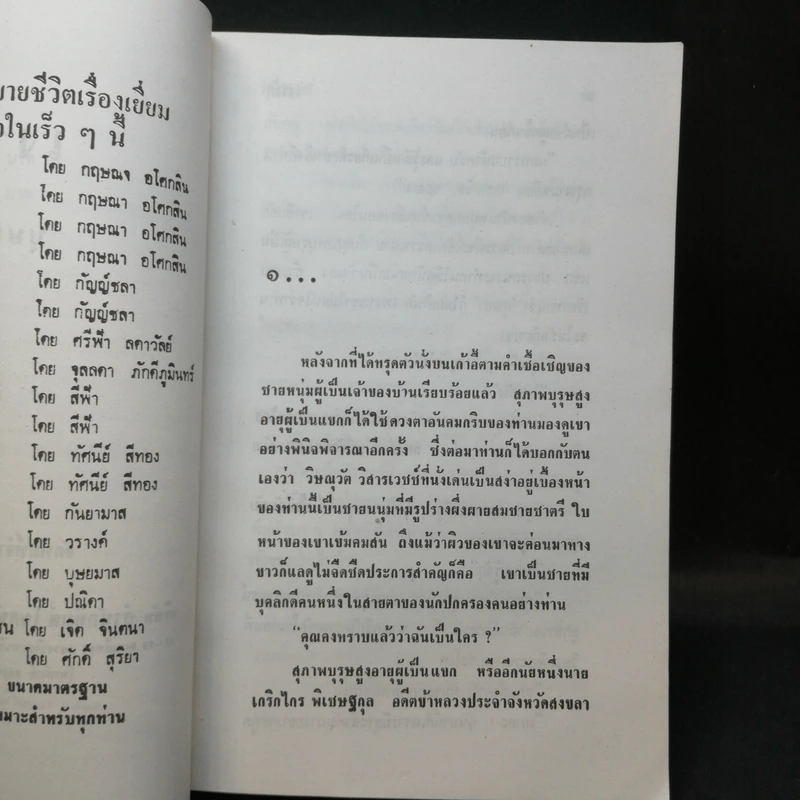 ขายชีวิตเรื่องเยี่ยม
ในเร็ว ๆ นี้
โดย กฤษณา อโศกสิน
โดย กฤษณา อโศกสิน
โดย กฤษณา อโศกสิน
โดย กฤษณา อโศกสิน
โดย กัญญ์ชลา
โดย กัญญ์ชลา
โดย ศรีฟ้า ลดาวัลย์
โดย จุลลดา ภักดีภูมินทร์
โดย สีฟ้า
โดย สีฟ้า
โดย ทัศนีย์ สีทอง
โดย ทัศนีย์ สีทอง
โดย กันยามาส
โดย วรางค์
โดย บุษยมาส
โดย ปณิตา
โดย เจิด จินตนา
โดย ศักดิ์ สุริยา
ขนาดมาตรฐาน
มาะสำหรับทุกท่าน
๑...
หลังจากที่ได้ทรุดตัวนั่งบนเก้าอี้ตามคำเชื้อเชิญของ
ชายหนุ่มผู้เป็นเจ้าของบ้านเรียบร้อยแล้ว สุภาพบุรุษสูง
อายุผู้เป็นแขกก็ได้ใช้ดวงตาอันคมกริบของท่านมองดูเขา
อย่างพินิจพิจารณาอีกครั้ง ซึ่งต่อมาท่านก็ได้บอกกับตน
เองว่า วิษณุวัต วิสารเวชช์ที่นั่งเด่นเป็นสง่าอยู่เบื้องหน้า
ของท่านนี้เป็นชายนนุ่มที่มีรูปร่างผึ่งผายสมชายชาตรี ใบ
หน้าของเขาเข้มคมสัน ถึงแม้ว่าผิวของเขาจะค่อนมาทาง
ขาวก็แลดูไม่จืดชืดประการสำคัญก็คือ เขาเป็นชายที่มี
บุคลิกดีคนหนึ่งในสายตาของนักปกครองคนอย่างท่าน
“คุณคงทราบแล้วว่าฉันเป็นใคร ?”
สุภาพบุรุษสูงอายุผู้เป็นแขก หรืออีกนัยหนึ่งนาย
เกริกไกร พิเชษฐกุล อดีตข้าหลวงประจำจังหวัดสงขลา